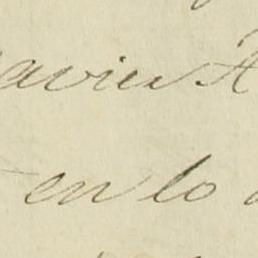 avier A
en lo